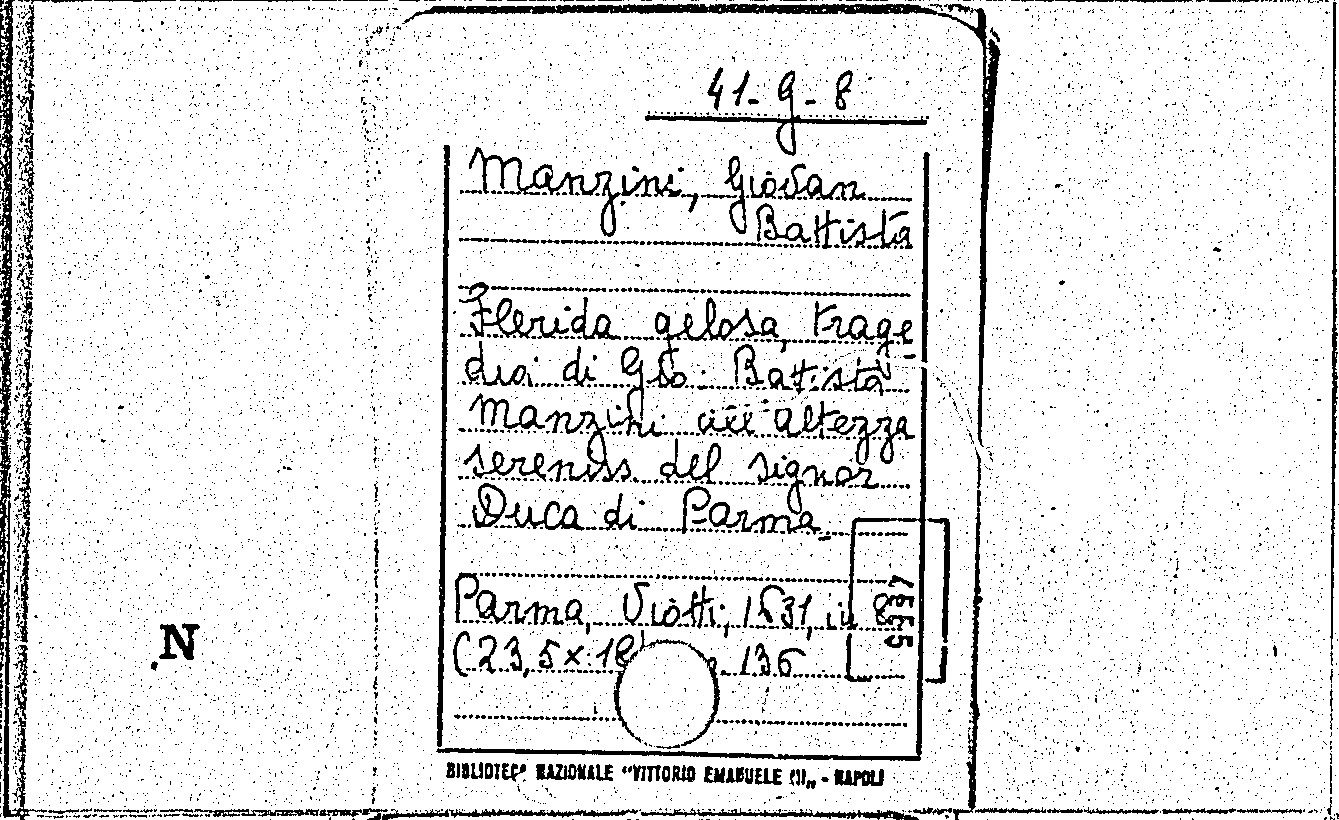 41-G-8
Manzini, Giovan
Battista
Flerida gelosa, trage
dia di Gio: Battista
Manzini all'altezza
sereniss. del signor
Duca di Parma.
Parma, Viotti, 1631, in 8
(23,5x18) 136
53557
N
BIBLIOTECA NAZIONALE "VITTORIO EMANUELE III" - NAPOLI